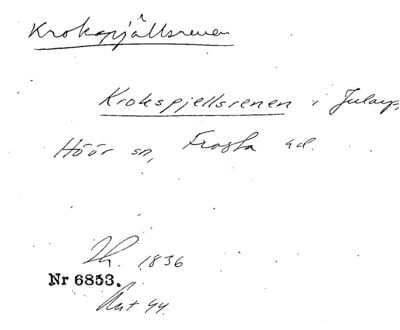 Krokspjällsrenen
Krokspjellsrenen i Jularp,
Höör sn, Frosta hd.
Th. 1836
Nr 6853.
Avt 44.